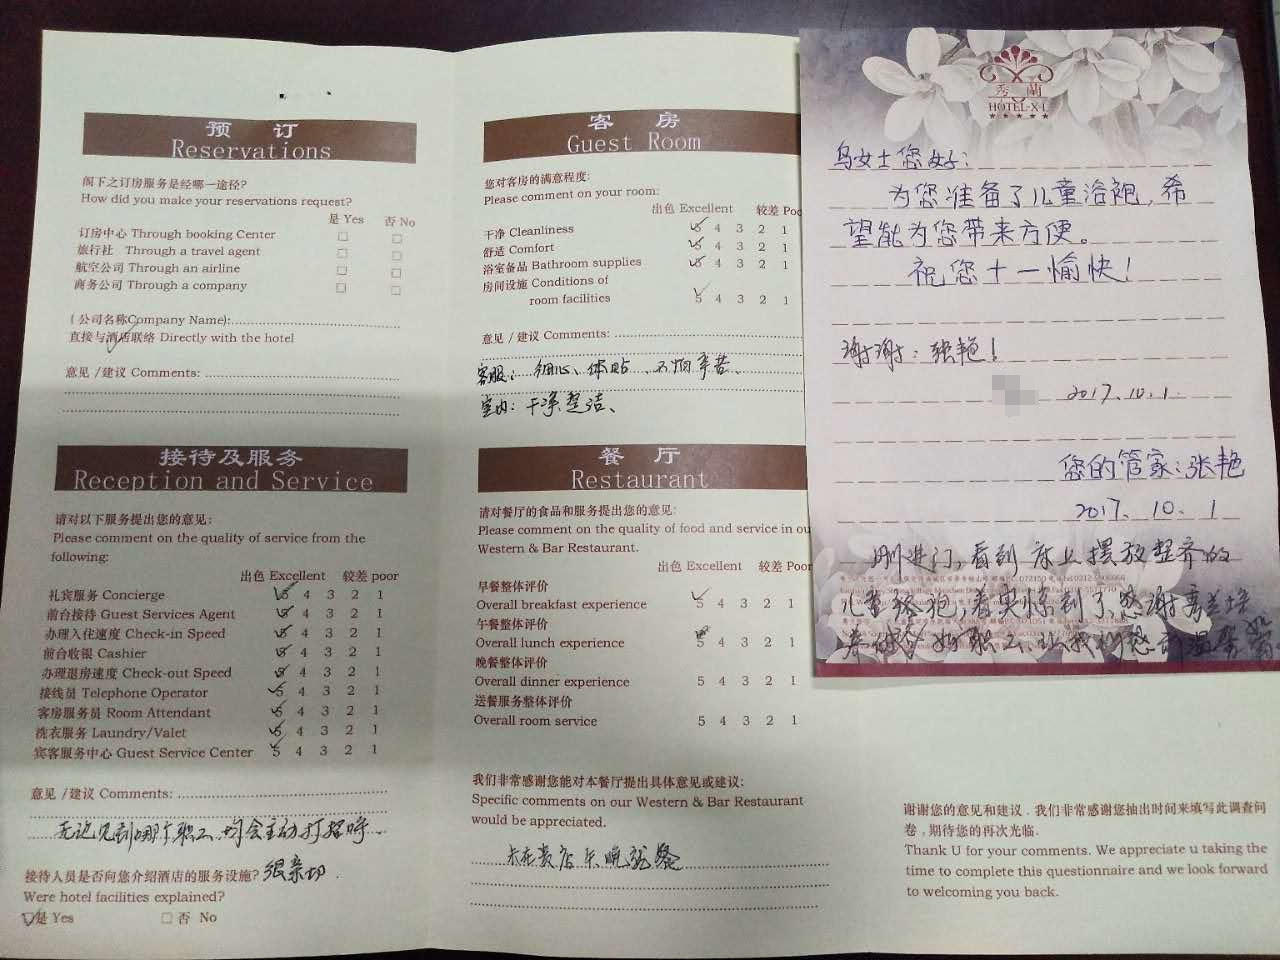 预 订
Reservations
阁下之订房服务是经哪一途径?
How did you make your reservations request?
是 Yes 否 No
订房中心 Through booking Center □ □
旅行社 Through a travel agent □ □
航空公司 Through an airline □ □
商务公司 Through a company □ □
(公司名称Company Name):
直接与酒店联络 Directly with the hotel
意见 / 建议 Comments:
接待及服务
Reception and Service
请对以下服务提出您的意见:
Please comment on the quality of service from the
following:
出色 Excellent 较差 poor
礼宾服务 Concierge 5 4 3 2 1
前台接待 Guest Services Agent 5 4 3 2 1
办理入住速度 Check-in Speed 5 4 3 2 1
前台收银 Cashier 5 4 3 2 1
办理退房速度 Check-out Speed 5 4 3 2 1
接线员 Telephone Operator 5 4 3 2 1
客房服务员 Room Attendant 5 4 3 2 1
洗衣服务 Laundry/Valet 5 4 3 2 1
宾客服务中心 Guest Service Center 5 4 3 2 1
意见 / 建议 Comments:
无论见到哪个职工,均会主动打招呼、
很亲切.
接待人员是否向您介绍酒店的服务设施?
Were hotel facilities explained?
□是 Yes □ 否 No
客 房
Guest Room
您对客房的满意程度:
Please comment on your room:
出色 Excellent 较差 Poo
干净 Cleanliness 5 4 3 2 1
舒适 Comfort 5 4 3 2 1
浴室备品 Bathroom supplies 5 4 3 2 1
房间设施 Conditions of
room facilities 5 4 3 2 1
意见 / 建议 Comments:
客服:细心、体贴、不怕辛苦、
室内:干净整洁、
餐 厅
Restaurant
请对餐厅的食品和服务提出您的意见:
Please comment on the quality of food and service in ou
Western & Bar Restaurant.
出色 Excellent 较差 Poor
早餐整体评价
Overall breakfast experience 5 4 3 2 1
午餐整体评价
Overall lunch experience 5 4 3 2 1
晚餐整体评价
Overall dinner experience 5 4 3 2 1
送餐服务整体评价
Overall room service 5 4 3 2 1
我们非常感谢您能对本餐厅提出具体意见或建议:
Specific comments on our Western & Bar Restaurant
would be appreciated.
未在贵店午晚就餐
秀蘭
HOTEL·X·L
★★★★★
乌女士您好:
为您准备了儿童浴袍,希
望能为您带来方便。
祝您十一愉快!
谢谢:张艳!
2017.10.1.
您的管家:张艳
2017.10.1
刚进门,看到床上摆放整齐的
儿童浴袍,着实惊到了,感谢秀兰
谢谢您的意见和建议,我们非常感谢您抽出时间来填写此调查问
卷,期待您的再次光临.
Thank U for your comments. We appreciate u taking the
time to complete this questionnaire and we look forward
to welcoming you back.